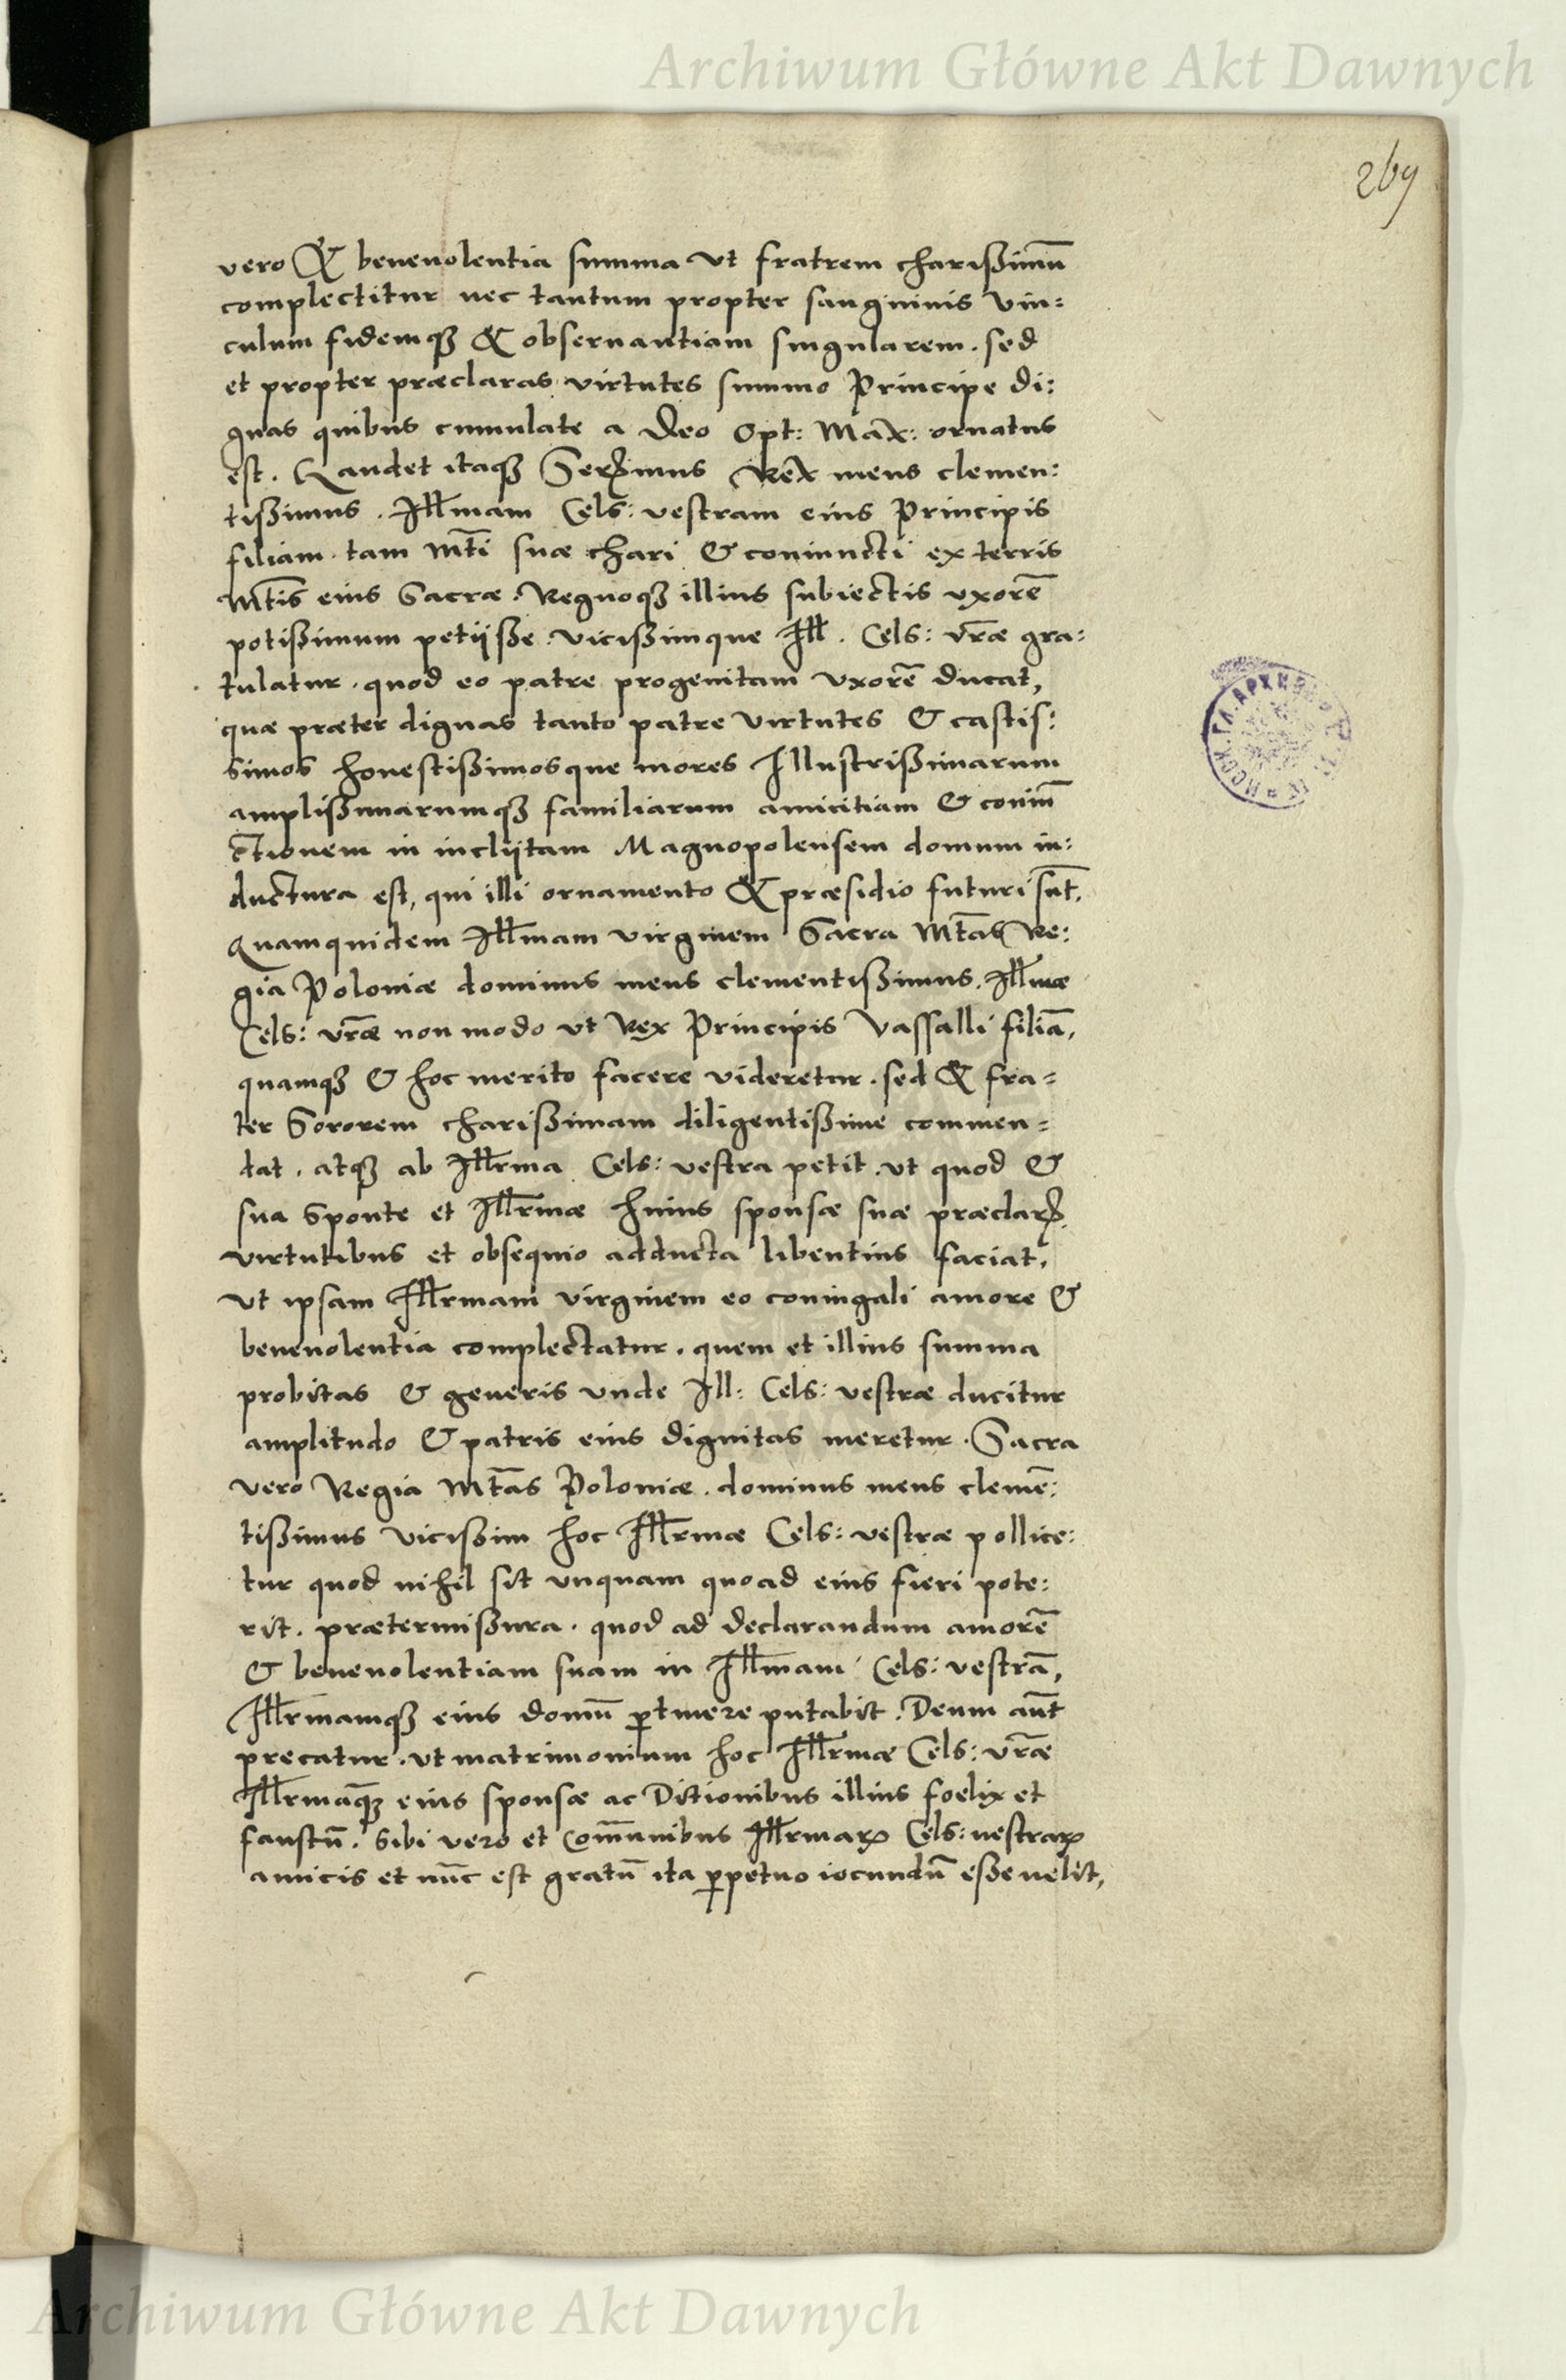 Archiwum Główne Akt Dawnych
269
vero & benevolentia summa ut fratrem charißimū
complectitur nec tantum propter sanguinis vin:
culum fidemqꝫ & obseruantiam singularem. sed
et propter præclaras virtutes summo Principe di:
gnas quibus cumulate a Deo Opt: Max: ornatus
est. Gaudet itaqꝫ Serꝫmus Rex meus clemen:
tißimus. Illm̄am Cels: vestram eius Principis
filiam tam Mt̄i suæ chari & coniuncti ex terris
Mt̄is eius Sacræ. Regnoqꝫ illius subiectis uxorē
potißimum petijße vicißimque Ill̄. Cels: vr̄æ gra:
tulatur. quod eo patre progenitam uxorē ducat,
quæ præter dignas tanto patre virtutes & castis:
simos honestißimosque mores Illustrißimarum
amplißimarumqꝫ familiarum amicitiam & coniū
ctionem in inclijtam Magnopolensem domum in:
ductura est, qui illi ornamento & præsidio futuri sūt.
Quamquidem Illm̄am virginem Sacra Mt̄as Re:
gia Poloniæ dominus meus clementißimus. Illm̄æ
Cels: vr̄æ non modo ut Rex Principis Vassalli filiā,
quamqꝫ & hoc merito facere videretur. sed & fra=
ter Sororem charißimam diligentißime commen=
dat. atqꝫ ab Illr̄ma Cels: vestra petit. ut quod &
sua sponte et Illr̄mæ huius sponsæ suæ præclarꝫ
virtutibus et obsequio adducta libentius faciat,
ut ipsam Illr̄mam virginem eo coniugali amore &
benevolentia complectatur. quem et illius summa
probitas & generis unde Ill: Cels: vestræ ducitur
amplitudo & patris eius dignitas meretur. Sacra
vero Regia Mt̄as Poloniæ. dominus meus clemē:
tißimus vicißim hoc Illr̄mæ Cels: vestræ pollice:
tur quod nihil sit unquam quoad eius fieri pote:
rit. prætermißura. quod ad declarandum amorē
& benevolentiam suam in Illm̄am Cels: vestrā,
Illr̄mamqꝫ eius domū ꝑtinere putabit. Deum aūt
precatur. ut matrimonium hoc Illr̄mæ Cels: vr̄æ
Illr̄mæqꝫ eius sponsæ ac Ditionibus illius foelix et
faustū. sibi vero et com̄unibus Illr̄maꝝ Cels: uestraꝝ
amicis et nūc est gratū ita ꝑpetuo iocundū eße uelit,
Archiwum Główne Akt Dawnych